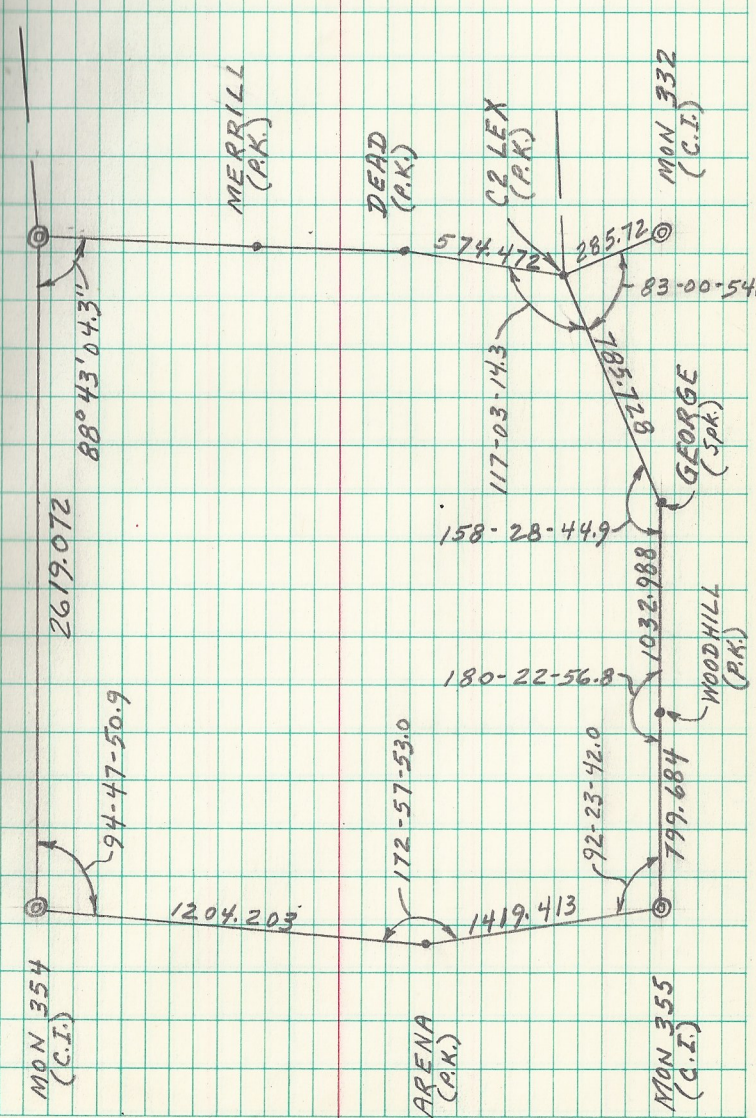 MERRILL
(P.K.)
DEAD
(P.K.)
C2 LEX
(P.K.)
MON 332
(C.I.)
574.472
285.72
83-00-54.
88°43'04.3"
117-03-14.3
785.728
GEORGE
(Spk.)
2619.072
158-28-44.9
1032.988
180-22-56.8
WOODHILL
(P.K.)
94-47-50.9
172-57-53.0
92-23-42.0
799.684
1204.203
1419.413
MON 354
(C.I.)
ARENA
(P.K.)
MON 355
(C.I.)